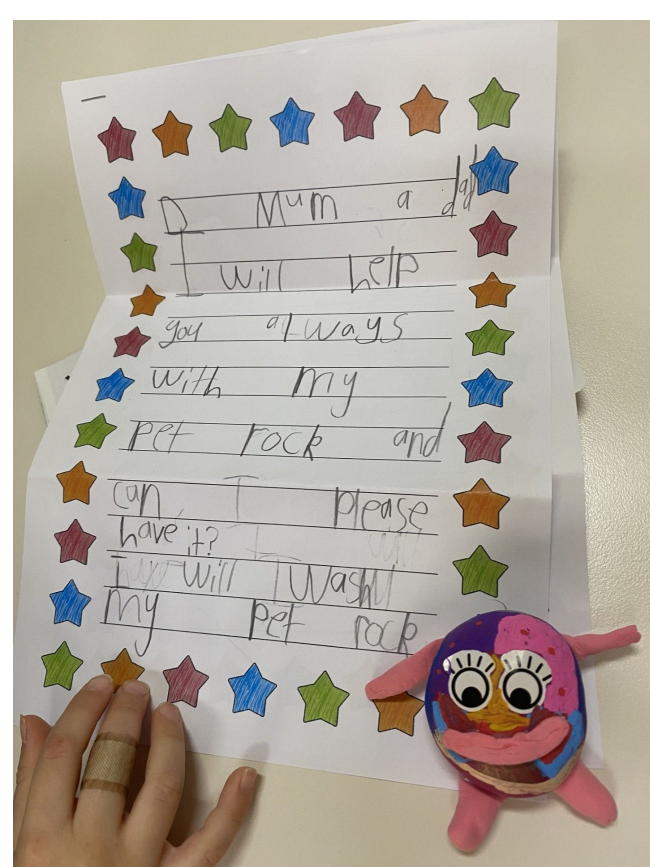 D Mum a dad
I will help
you always
with my
pet rock and
can I please
have it?
will I Wash
my pet rock